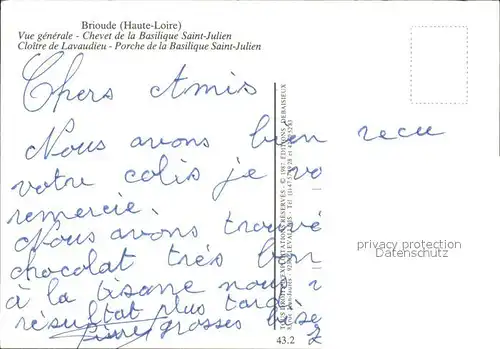 Brioude (Haute-Loire)
Vue générale - Chevet de la Basilique Saint-Julien
Cloître de Lavaudieu - Porche de la Basilique Saint-Julien
Chers Amis
Nous avons bien recu
votre colis je vo
remercie.
Nous avons trouvé
chocolat trés bon
à la tisane nous
résultat plus tard
Pierre grosses bise
43.2
privacy protection
Datenschutz